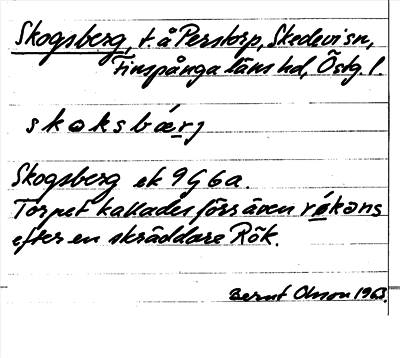 Skogsberg, t. å Perstorp, Skedevi sn,
Finspånga läns hd, Östg. l.
skoksbærj
Skogsberg ek 9G6a.
Torpet kallades förr även rø̀kəns
efter en skräddare Rök.
Bernt Olsson 1963.